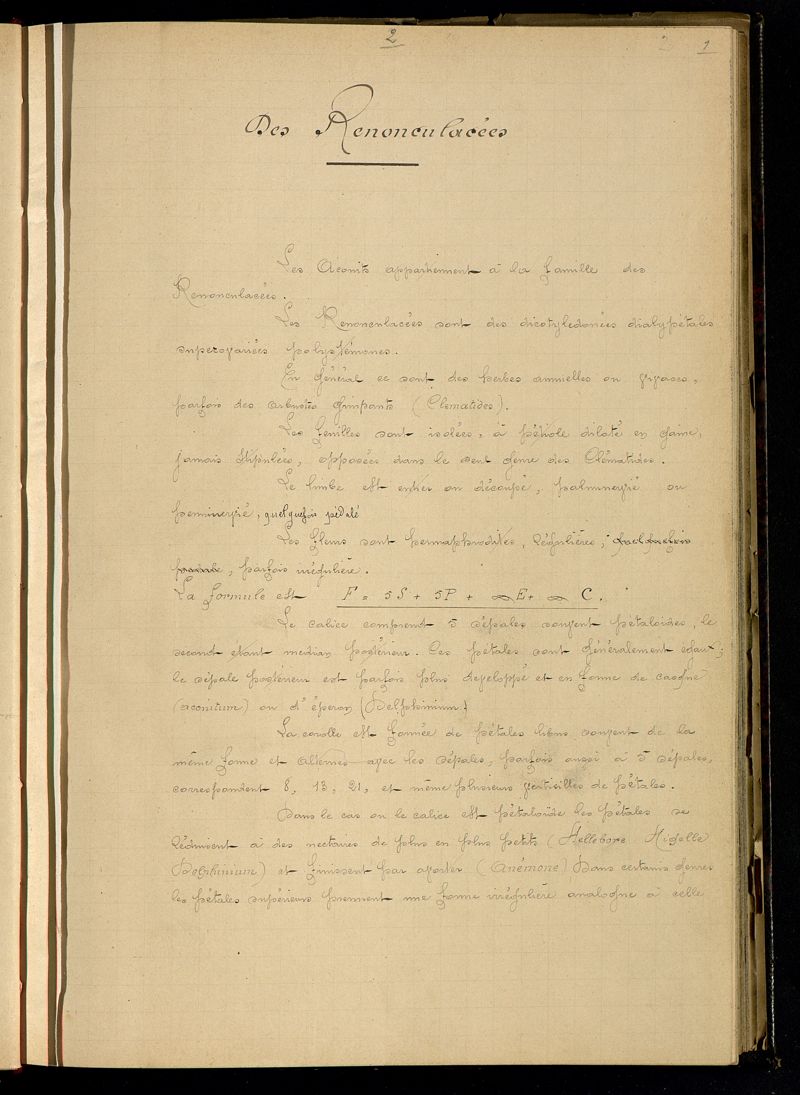 2
1
Des Renonculacées
Les Aconits appartiennent à la famille des
Renonculacées.
Les Renonculacées sont des dicotylédonées dialypétales
superovariées polystémones.
En général ce sont des herbes annuelles ou vivaces,
parfois des arbustes grimpants (Clématides).
Les feuilles sont isolées, à pétiole dilaté en gaine,
jamais stipulées, opposées dans le seul genre des Clématides.
Le limbe est entier ou découpé, palminervié ou
penninervié, quelquefois pédalé
Les fleurs sont hermaphrodites, régulières, quelquefois
, parfois irrégulière.
La formule est F = 5S + 5P + ∞E + ∞ C.
Le calice comprend 5 sépales souvent pétaloïdes, le
second étant médian postérieur. Ces pétales sont généralement égaux;
le sépale postérieur est parfois plus développé et en forme de casque
(aconitum) ou d'éperon (Delphinium)
La corolle est formée de pétales libres souvent de la
même forme et alternes avec les sépales, parfois aussi à 5 sépales,
correspondent 8, 13, 21, et même plusieurs verticilles de pétales.
Dans le cas ou le calice est pétaloïde les pétales se
réduisent à des nectaires de plus en plus petits (Hellebore Nigelle
Delphinium) et finissent par avorter (Anémone) Dans certains genres
les pétales supérieurs prennent une forme irrégulière analogue à celle